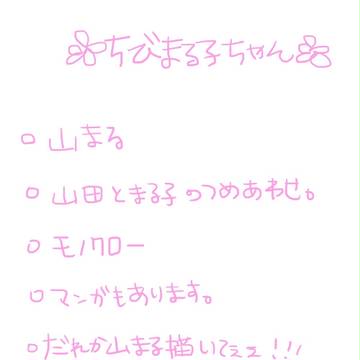 ちびまる子ちゃん
○ 山まる
○ 山田とまる子のつめあわせ。
○ モノクロー
○ マンガもあります。
○ だれか山まる描いてぇぇ!!!